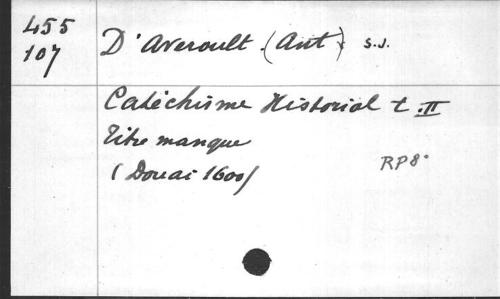 455
107
D'Averoult (Ant) S.J.
Catéchisme Historial t. II
Titre manque
(Douai 1600)
RP8°